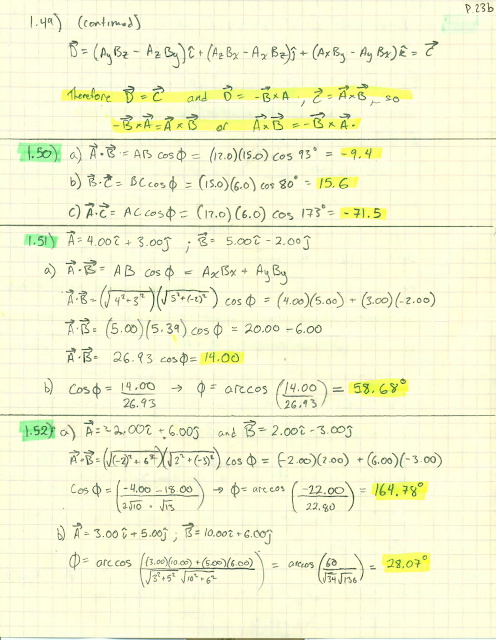 P.23b
1.49) (continued)
D⃗ = (AyBz - AzBy)î + (AzBx - AxBz)ĵ + (AxBy - AyBx)k̂ = C⃗
Therefore D⃗ = C⃗ and D⃗ = -B⃗×A, C⃗ = A⃗×B⃗, so
-B⃗×A⃗ = A⃗×B⃗ or A⃗×B⃗ = -B⃗×A⃗.
1.50) a) A⃗·B⃗ = AB cosϕ = (12.0)(15.0) cos 93° = -9.4
b) B⃗·C⃗ = BC cosϕ = (15.0)(6.0) cos 80° = 15.6
c) A⃗·C⃗ = AC cosϕ = (12.0)(6.0) cos 173° = -71.5
1.51) A⃗ = 4.00î + 3.00ĵ ; B⃗ = 5.00î - 2.00ĵ
a) A⃗·B⃗ = AB cosϕ = AxBx + AyBy
A⃗·B⃗ = (√(4²+3²))(√(5²+(-2)²)) cosϕ = (4.00)(5.00) + (3.00)(-2.00)
A⃗·B⃗ = (5.00)(5.39) cosϕ = 20.00 - 6.00
A⃗·B⃗ = 26.93 cosϕ = 14.00
b) cosϕ = 14.00/26.93 → ϕ = arccos (14.00/26.93) = 58.68°
1.52) a) A⃗ = -2.00î + 6.00ĵ and B⃗ = 2.00î - 3.00ĵ
A⃗·B⃗ = (√((-2)²+6²))(√(2²+(-3)²)) cosϕ = (-2.00)(2.00) + (6.00)(-3.00)
cosϕ = (-4.00 - 18.00 / 2√10 · √13) → ϕ = arccos (-22.00/22.80) = 164.78°
b) A⃗ = 3.00î + 5.00ĵ ; B⃗ = 10.00î + 6.00ĵ
ϕ = arccos ((3.00)(10.00) + (5.00)(6.00) / √(3²+5²) √(10²+6²)) = arccos (60/√34√136) = 28.07°